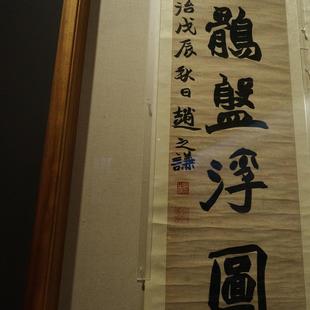 鶻盤浮圖
治戊辰秋日趙之謙